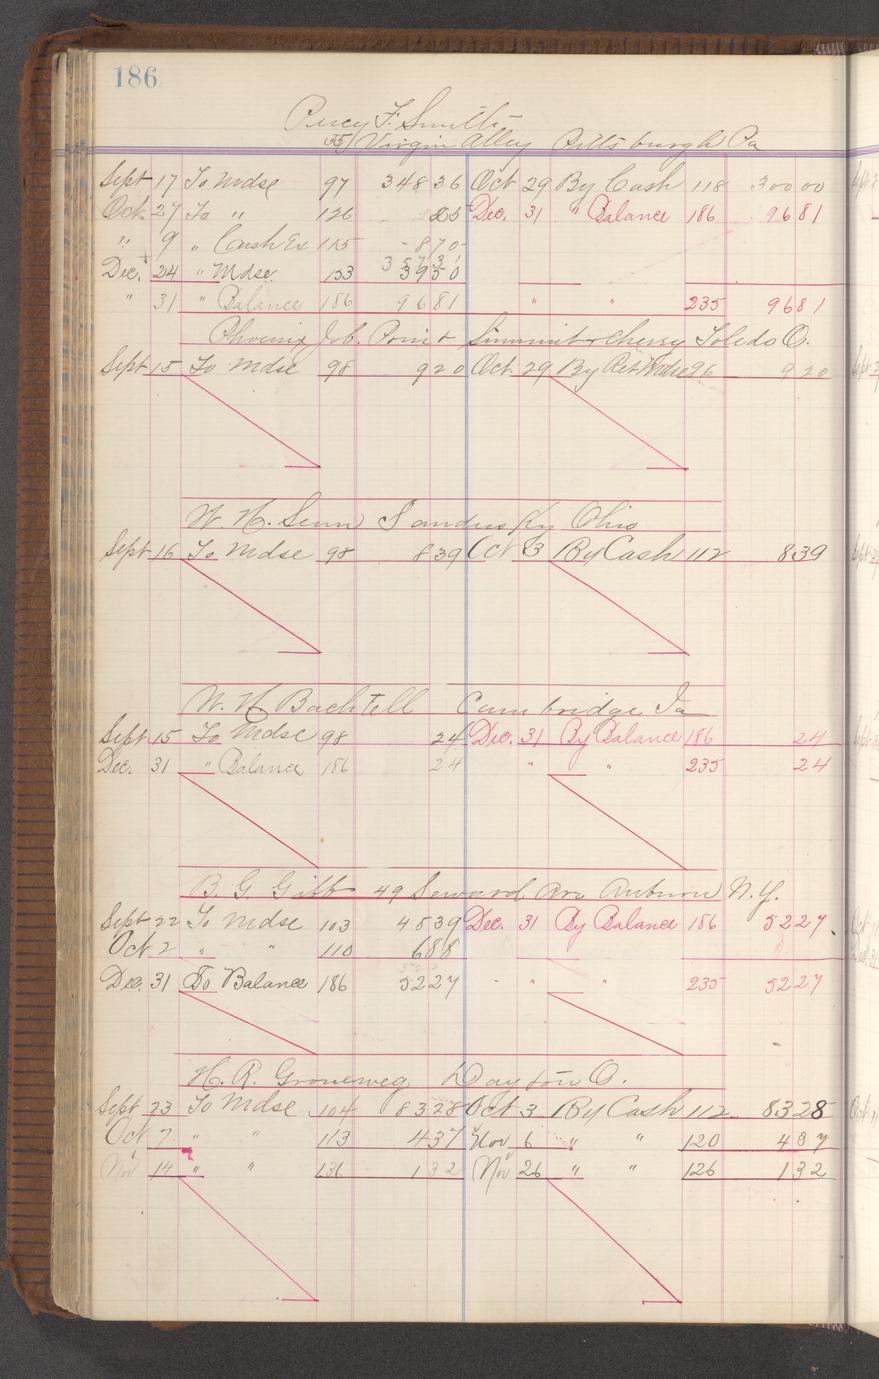 186
Percy F. Smith
55 Virgin Alley Pittsburgh Pa
Sept 17 To Mdse 97 348 36 Oct 29 By Cash 118 300 00
Oct. 27 To " 126 25 Dec. 31 " Balance 186 96 81
" 9 " Cash Ex 115 - 8 70 -
357 31
Dec. 24 " Mdse. 153 39 50
" 31 " Balance 186 96 81 " " 235 96 81
Phoenix Job. Print Summit & Cherry Toledo O.
Sept 15 To Mdse 98 9 20 Oct. 29 By Ret Mdse 96 9 20
W. H. Senn Sandusky Ohio
Sept 16 To Mdse 98 8 39 Oct 3 By Cash 112 8 39
W. H. Bachtell Cambridge Ia
Sept 15 To Mdse 98 24 Dec. 31 By Balance 186 24
Dec. 31 " Balance 186 24 " " 235 24
B. G. Gibb 49 Seward Ave Auburn N.Y.
Sept 22 To Mdse 103 45 39 Dec. 31 By Balance 186 52 27
Oct 2 " " 110 6 88
Dec. 31 To Balance 186 52 27 " " " 235 52 27
H. R. Groneweg Dayton O.
Sept 23 To Mdse 104 83 28 Oct 3 By Cash 112 83 28
Oct 7 " " 113 4 37 Nov 6 " " 120 4 37
Nov 14 " " 136 1 32 Nov 26 " " 126 1 32